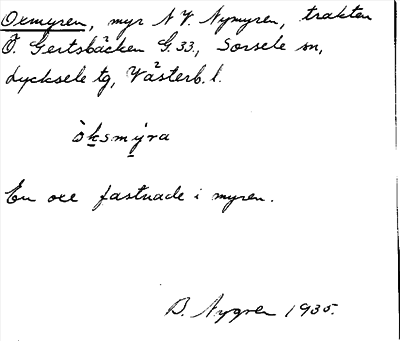 Oxmyren, myr N V. Nymyren, trakten
Ö. Gertsbäcken G. 33., Sorsele sn,
Lycksele tg, Västerb. l.
òksmýra
En oxe fastnade i myren.
B. Nygren 1935.